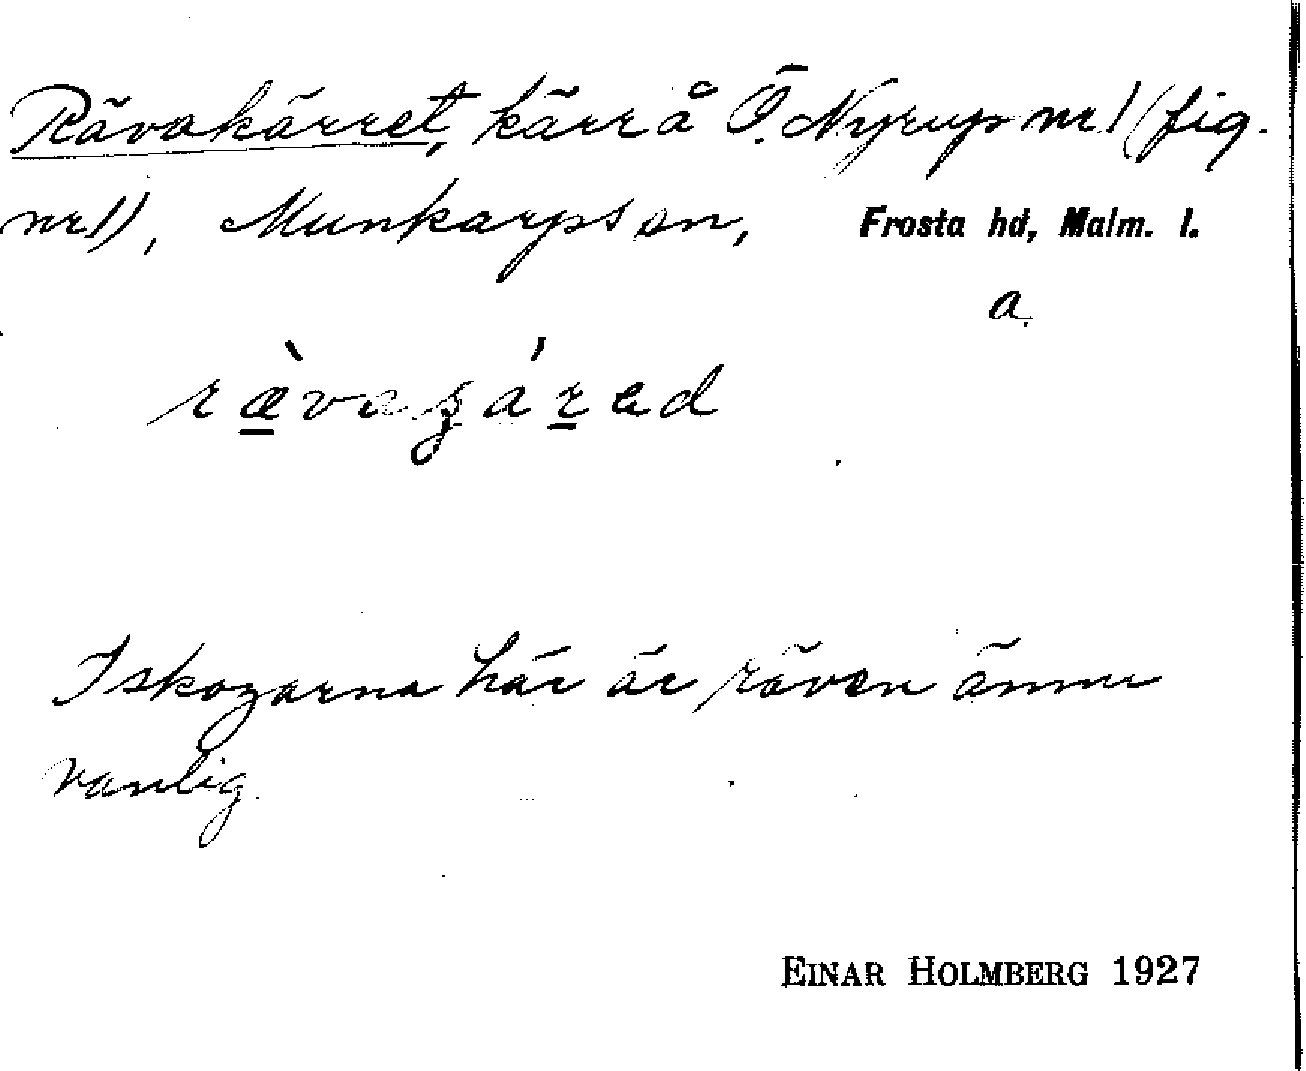 Rävakärret, kärr å Ö. Nyrup nr 1 (fig.
nr 1), Munkarps sn, Frosta hd, Malm. l.
a.
Iskogarna här är räven ännu
vanlig.
EINAR HOLMBERG 1927